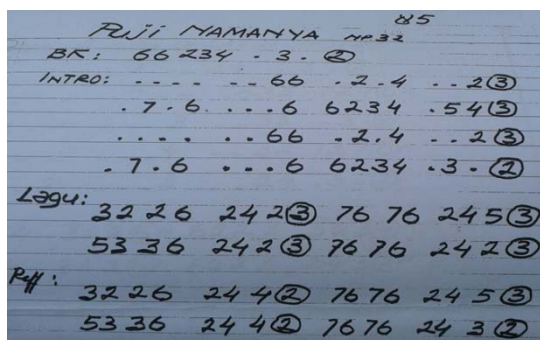 85
Puji NAMANYA MP 32
BK: 66 234 . 3 . ②
INTRO: .... ..66 .2.4 ..2③
.7.6 ...6 6234 .54③
.... ..66 .2.4 ..2③
.7.6 ...6 6234 .3.②
Lagu: 3226 242③ 7676 245③
5336 242③ 7676 242③
Reff: 3226 244② 7676 245③
5336 244② 7676 243②